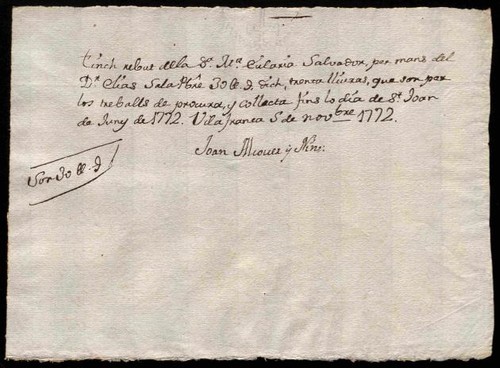 Tinch rebut de la Sª. Mª. Eularia Salvador, per mans del
Dr. Elias Sala Pbre 30 ll. d. dich, trenta lliuras, que son per
los treballs de procura, y collecta fins lo dia de St. Joan
de Juny de 1772. Vilafranca 5 de novbre 1772.
Joan Miquel y
Son 30 ll. d.